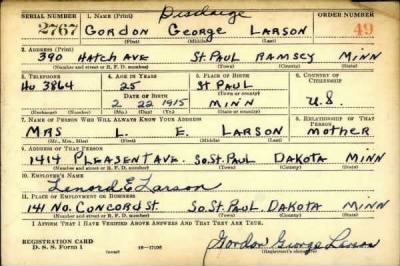 Discharge
SERIAL NUMBER 1. NAME (Print) ORDER NUMBER
2767 GORDON GEORGE LARSON 49
(First) (Middle) (Last)
2. ADDRESS (Print)
390 HATCH AVE ST. PAUL RAMSEY MINN
(Number and street or R. F. D. number) (Town) (County) (State)
3. TELEPHONE 4. AGE IN YEARS 5. PLACE OF BIRTH 6. COUNTRY OF CITIZENSHIP
HU 3864 25 ST PAUL
DATE OF BIRTH
2 22 1915 MINN U.S.
(Exchange) (Number) (Mo.) (Day) (Yr.) (State or country)
7. NAME OF PERSON WHO WILL ALWAYS KNOW YOUR ADDRESS 8. RELATIONSHIP OF THAT PERSON
MRS L. E. LARSON MOTHER
(Mr., Mrs., Miss) (First) (Middle) (Last)
9. ADDRESS OF THAT PERSON
1414 PLEASENT AVE. SO. ST. PAUL DAKOTA MINN
(Number and street or R. F. D. number) (Town) (County) (State)
10. EMPLOYER'S NAME
Lenord E Larson
11. PLACE OF EMPLOYMENT OR BUSINESS
141 NO. CONCORD ST. SO. ST. PAUL DAKOTA MINN
(Number and street or R. F. D. number) (Town) (County) (State)
I AFFIRM THAT I HAVE VERIFIED ABOVE ANSWERS AND THAT THEY ARE TRUE.
REGISTRATION CARD
D. S. S. Form 1 Gordon George Larson
(Registrant's signature)